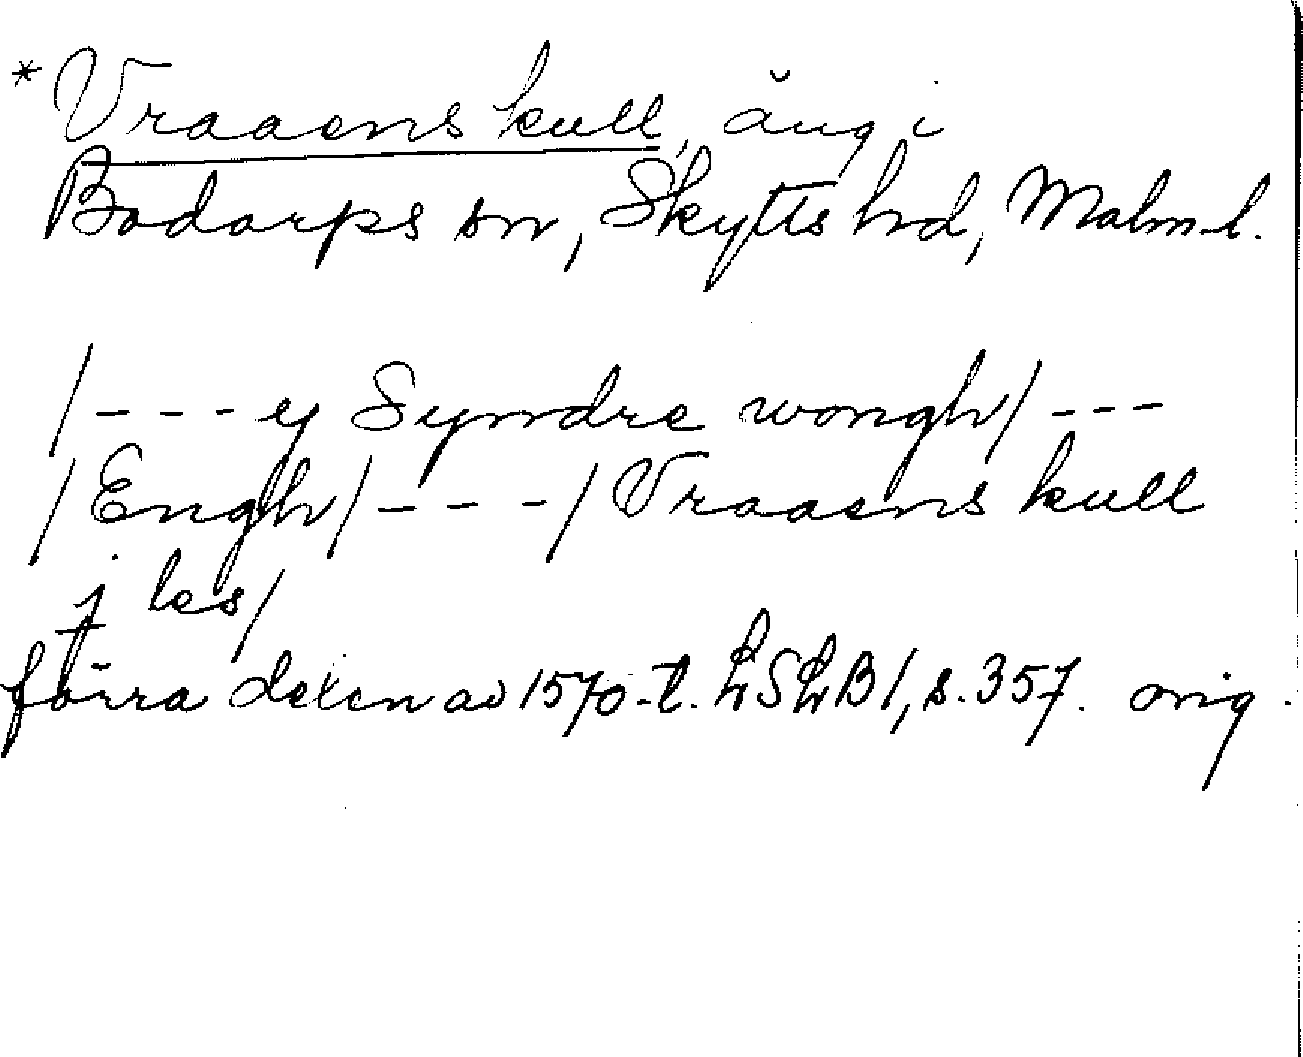 *Vraaens kull, äng i
Bodarps sn, Skytts hd, Malm-l.
/---ey Syndre wongh/---
/Engh/---/Vraaens kull
j les/
förra delen av 1570-t. LSLB1, s.357. orig.